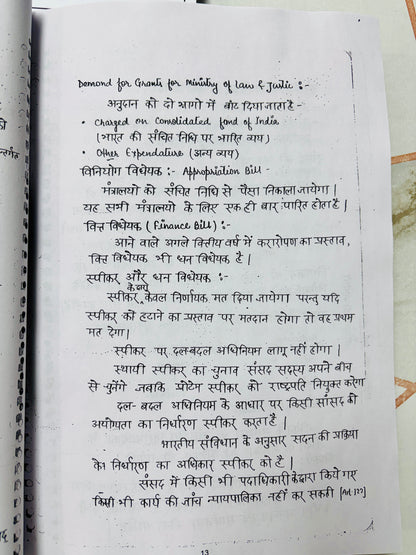 Demand for Grants for Ministry of Law & Justic :-
अनुदान को दो भागो में बाँट दिया जाता है -
• Charged on Consolidated fond of India
(भारत की संचित निधि पर भारित व्यय)
• Other Expendature (अन्य व्यय)
विनियोग विधेयक :- Appropriation Bill -
मंत्रालयो को संचित निधि से पैसा निकाला जायेगा |
यह सभी मंत्रालयो के लिए एक ही बार पारित होता है |
वित्त विधेयक (Finance Bill) :-
आने वाले अगले वित्तीय वर्ष में करारोपण का प्रस्ताव,
वित्त विधेयक भी धन विधेयक है |
स्पीकर और धन विधेयक :-
के द्वारा
स्पीकर केवल निर्णायक मत दिया जायेगा परन्तु यदि
स्पीकर को हटाने का प्रस्ताव पर मतदान होगा तो वह प्रथम
मत देगा |
स्पीकर पर दल-बदल अधिनियम लागू नहीं होगा |
स्थायी स्पीकर का चुनाव संसद सदस्य अपने बीच
से चुनेंगे जबकि प्रोटेम स्पीकर को राष्ट्रपति नियुक्त करेगा
दल-बदल अधिनियम के आधार पर किसी सांसद की
अयोग्यता का निर्धारण स्पीकर करता है |
भारतीय संविधान के अनुसार सदन की प्रक्रिया
के निर्धारण का अधिकार स्पीकर को है |
संसद में किसी भी पदाधिकारी के द्वारा किये गए
किसी भी कार्य की जाँच न्यायपालिका नहीं कर सकती [Art 122]
13